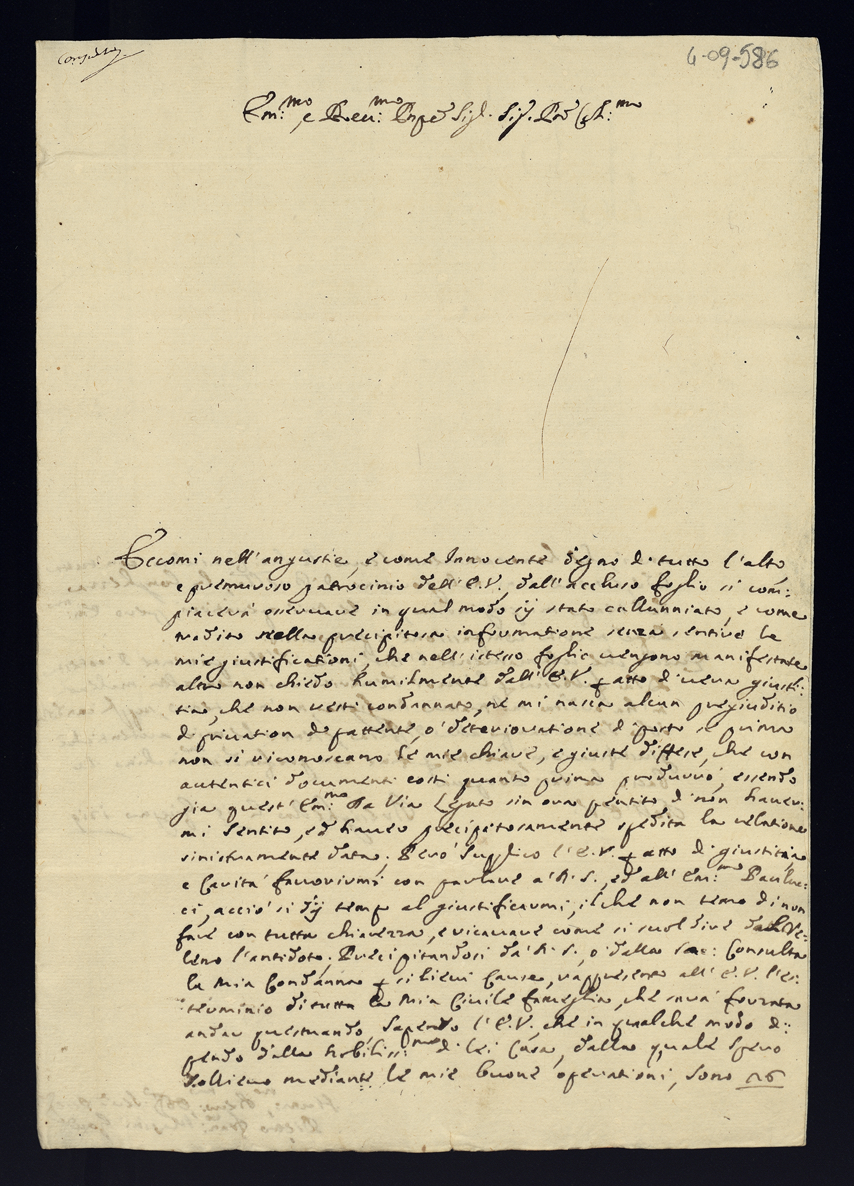 4-09-586
Em:mo e Reu:mo Sig.
Eccomi nell'angustie, e come Innocente degno di tutto l'alto
e premuroso patrocinio dell'E.V., dall'accluso foglio si com:
piacerà osservare in qual modo sij stato callunniato, e come
tradito nella precipitosa informatione senza sentire le
mie giustificationi, che nell'istesso foglio vengono manifestate
altro non chiedo humilmente dall'E.V. p atto di vera giusti:
tia, che non resti condannato, ne mi nasca alcun pregiuditio
di privation di pattente, o' deterioratione di posto se prima
non si riconoscano le mie chiare, e giuste diffese, che con
autentici documenti costì quanto prima produrrò, essendo
gia quest'Em:mo Da Via Legato sin ora pentito di non haver:
mi sentito, ed haver precipitosamente spedita la relatione
sinistramente data; Però supplico l'E.V. p atto di giustitia,
e Carità favorirmi con parlare a' N.S., ed all'Em:mo Pauluc:
ci, acciò si dij tempo al giustificarmi, il che non temo di non
fare con tutta chiarezza, e ricavare come si suol dire dal Ve:
leno l'antidoto; Precipitandosi da N.S., o' dalla Sac: Consulta
la mia Condanna p si lievi Cause, rappresento all'E.V. l'es:
terminio di tutta la mia Civile fameglia, che sarà forzata
andar questuando, Sapendo l'E.V. che in qualche modo di:
pendo dalla Nobilissi:ma di lei Casa, dalla quale spero
sollievo mediante le mie buone operationi, sono